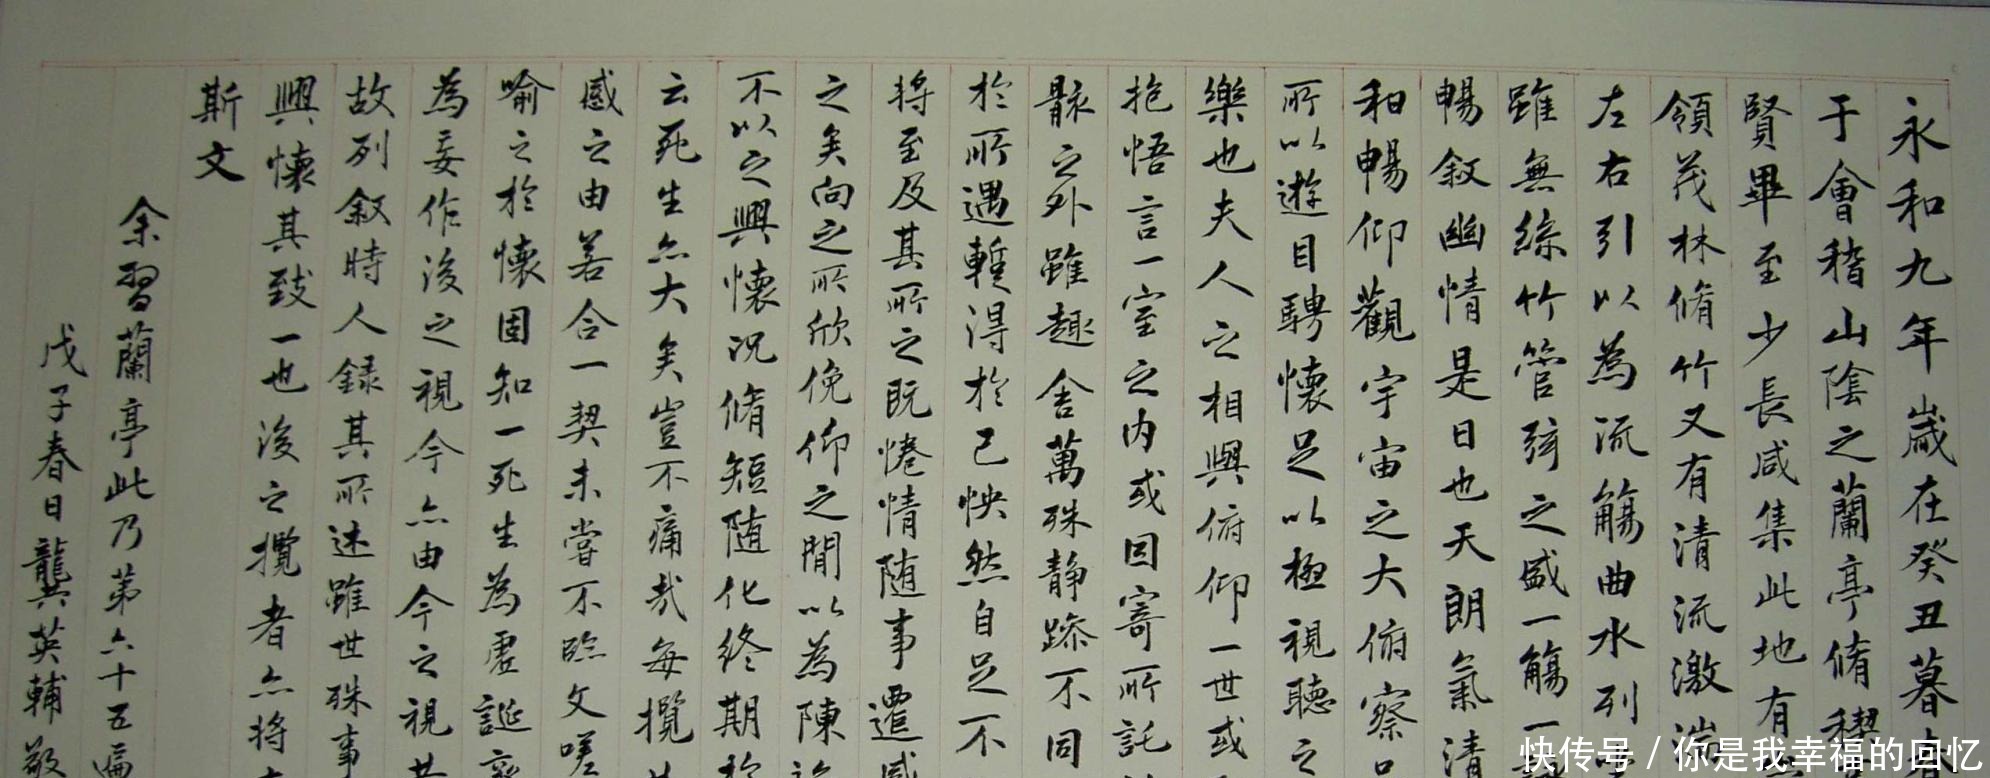 永和九年歲在癸丑暮
于會稽山陰之蘭亭脩禊
賢畢至少長咸集此地有
領茂林脩竹又有清流激湍
左右引以為流觴曲水列
雖無絲竹管弦之盛一觴一
暢敘幽情是日也天朗氣清
和暢仰觀宇宙之大俯察
所以遊目騁懷足以極視聽之
樂也夫人之相與俯仰一世或
抱悟言一室之內或因寄所託
骸之外雖趣舍萬殊靜躁不同
於所遇蹔得於己怏然自足不
將至及其所之既惓情隨事遷感
之矣向之所欣俛仰之閒以為陳
不以之興懷況脩短隨化終期
云死生亦大矣豈不痛哉每攬
感之由若合一契未嘗不臨文嗟
喻之於懷固知一死生為虛誕
為妄作後之視今亦由今之視
故列敘時人錄其所述雖世殊事
興懷其致一也後之攬者亦將
斯文
余習蘭亭此乃第六十五遍
戊子春日龔英輔敬
快传号/你是我幸福的回忆